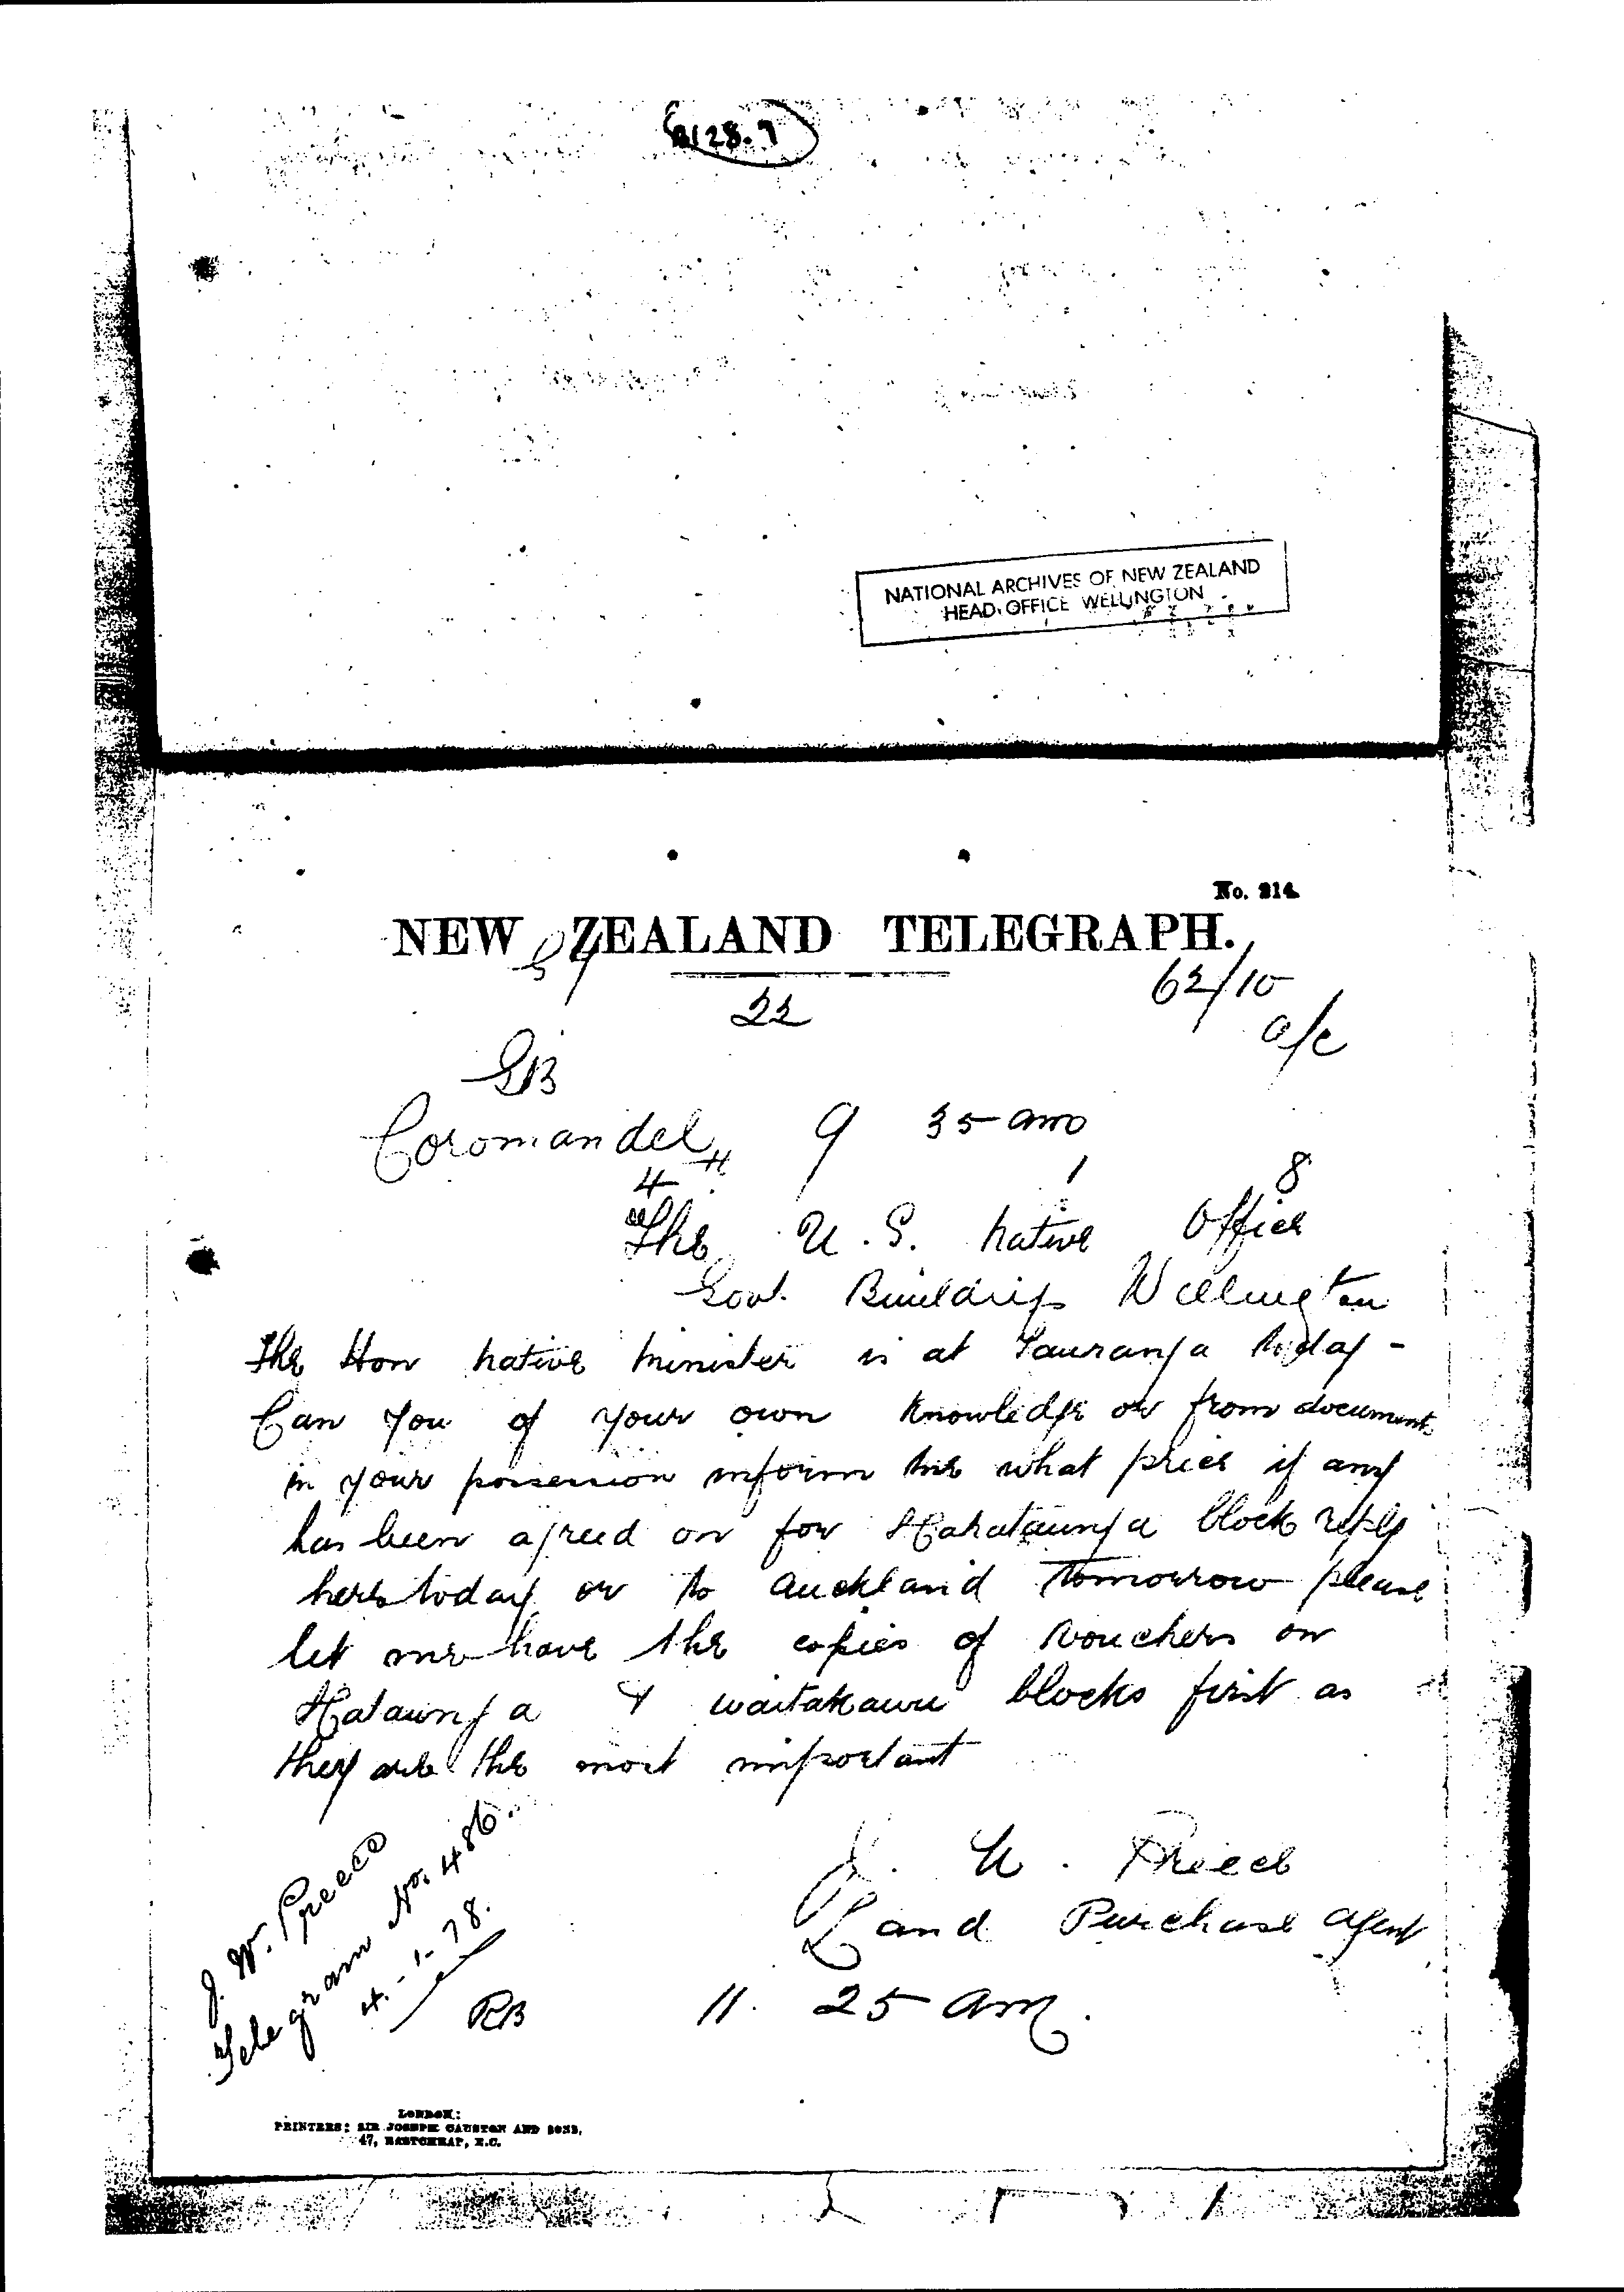 B128.9
NATIONAL ARCHIVES OF NEW ZEALAND
HEAD OFFICE WELLINGTON
No. 214.
NEW ZEALAND TELEGRAPH.
62/10
22
a/c
GB
Coromandel 9 35 am
4 1 8
The U.S. Native Office
Govt. Buildings Wellington
The Hon Native Minister is at Tauranga today -
Can you of your own knowledge or from documents
in your possession inform me what price if any
has been agreed on for Harataunga block reply
here today or to Auckland tomorrow please
let me have the copies of vouchers on
Hataunga & Waitakauru blocks first as
they are the most important
J. W. Preece
Land Purchase Agent
11. 25 am.
J. W. Preece
Telegram No. 486.
4.-1-78.
RB
LONDON:
PRINTERS: SIR JOSEPH CAUSTON AND SONS,
47, EASTCHEAP, E.C.